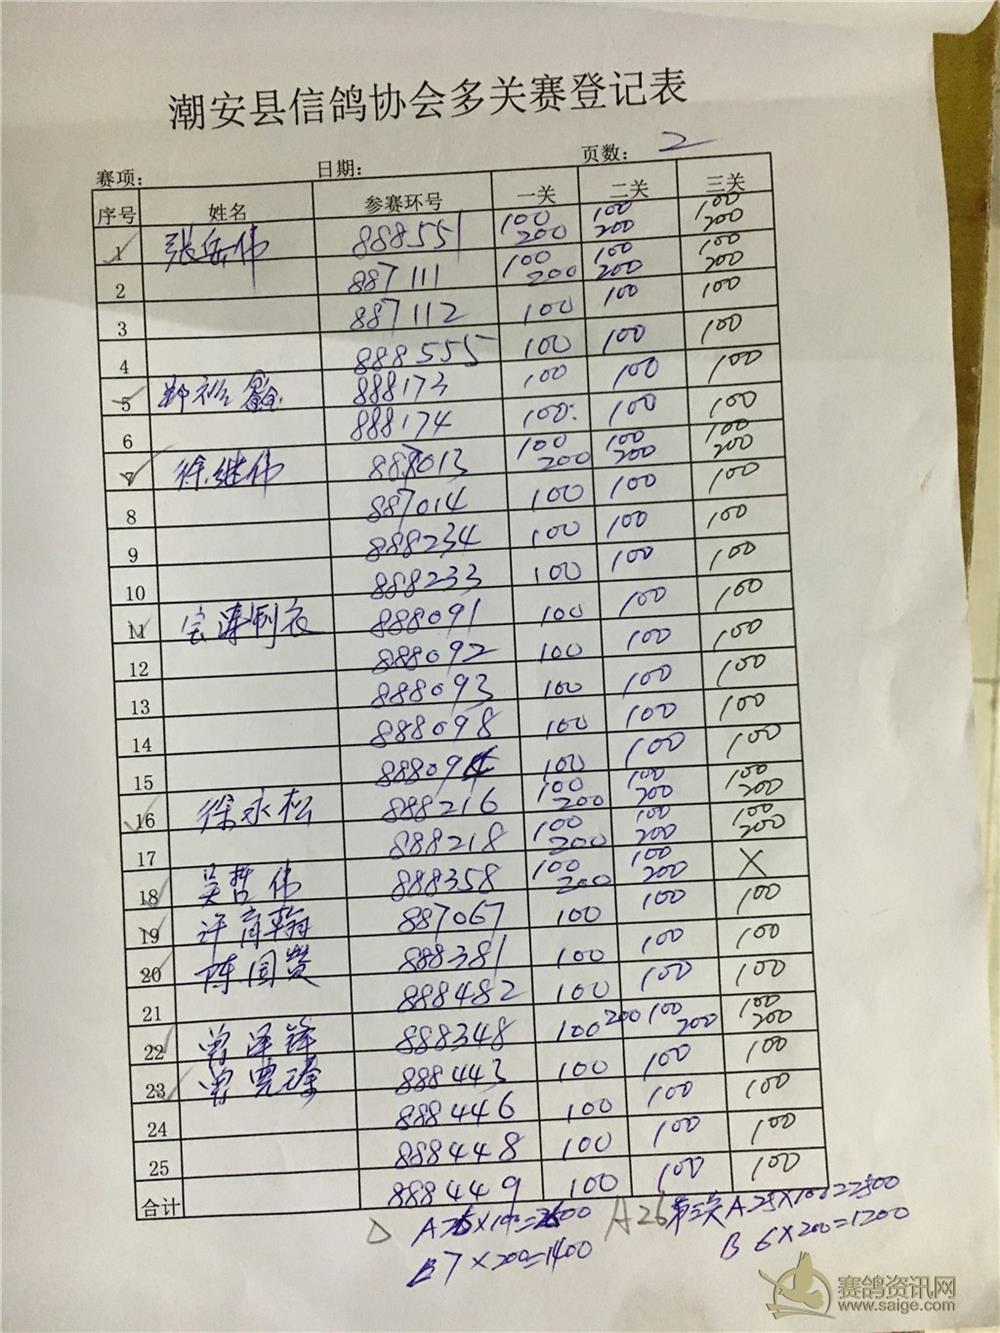 潮安县信鸽协会多关赛登记表
赛项: 日期: 页数: 2
序号 姓名 参赛环号 一关 二关 三关
1 张岳伟 888551 100 200 100 200 100 200
2 887111 100 200 100 200 100 200
3 887112 100 100 100
4 888555 100 100 100
5 郑 888173 100 100 100
6 888174 100 100 100
7 徐继伟 887013 100 200 100 200 100 200
8 887014 100 100 100
9 888234 100 100 100
10 888233 100 100 100
11 宝涛制衣 888091 100 100 100
12 888092 100 100 100
13 888093 100 100 100
14 888098 100 100 100
15 888094 100 100 100
16 徐永松 888216 100 200 100 200 100 200
17 888218 100 200 100 200 100 200
18 吴哲伟 888358 100 200 100 200 X
19 许育翰 887067 100 100 100
20 陈国赞 888381 100 100 100
21 888482 100 100 100
22 曾泽锋 888348 100 200 100 200 100 200
23 曾 888443 100 100 100
24 888446 100 100 100
25 888448 100 100 100
合计 888449 100 100 100
A26×100=2600 A26 第三关A25×100=2500
B7×200=1400 B 6×200=1200
赛鸽资讯网
www.saige.com